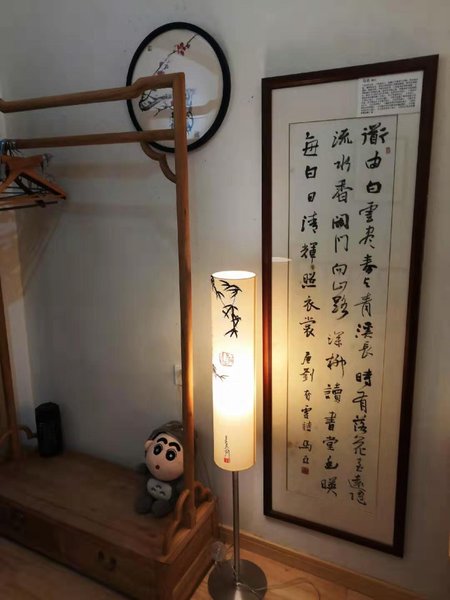 道由白雲尽春与青溪長時有落花至遠隨
流水香閑門向山路深柳讀書堂幽映
每白日清輝照衣裳 唐劉昚虛詩 馬